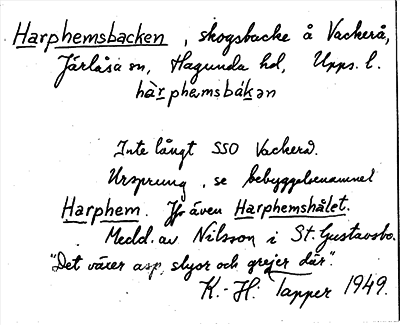 Harphemsbacken, skogsbacke å Vackerå,
Järlåsa sn, Hagunda hd, Upps. l.
hàrphemsbákən
Inte långt SSO Vackerå.
Ursprung, se bebyggelsenamnet
Harphem. Jfr även Harphemshålet.
Medd. av Nilsson i St. Gustavsbo.
"Det växer asp, slyor och grejer där".
K.-H. Tapper 1949.